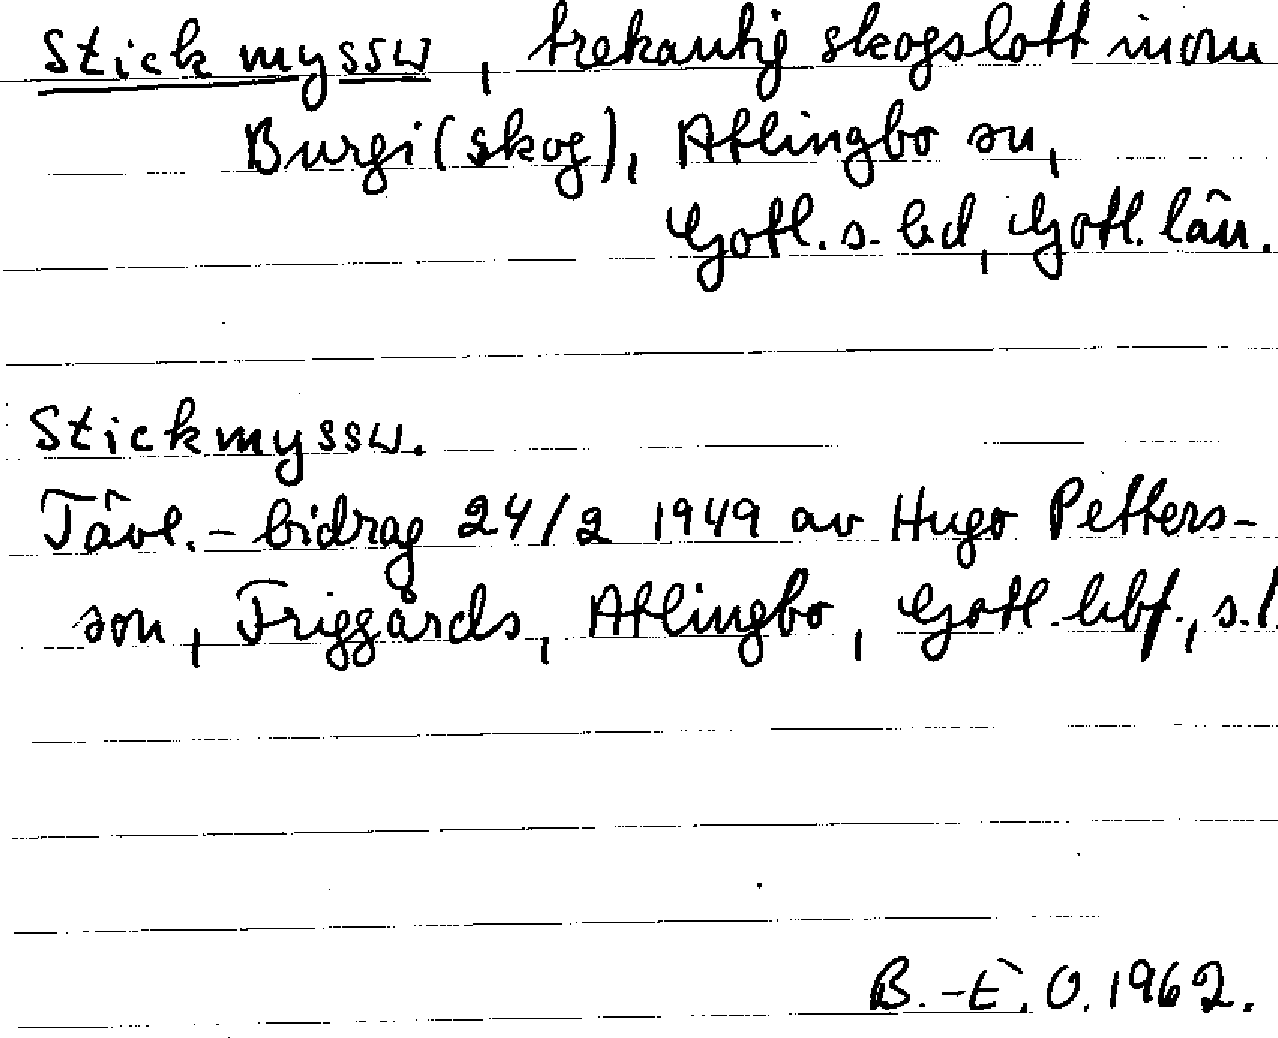 Stickmyssu, trekantig skogslott inom
Burgi (skog), Atlingbo sn,
Gotl. s. hd, Gotl. län.
Stickmyssu.
Tävl.-bidrag 24/2 1949 av Hugo Petters-
son, Friggårds, Atlingbo, Gotl. hbf., s.1.
B.-E. O. 1962.